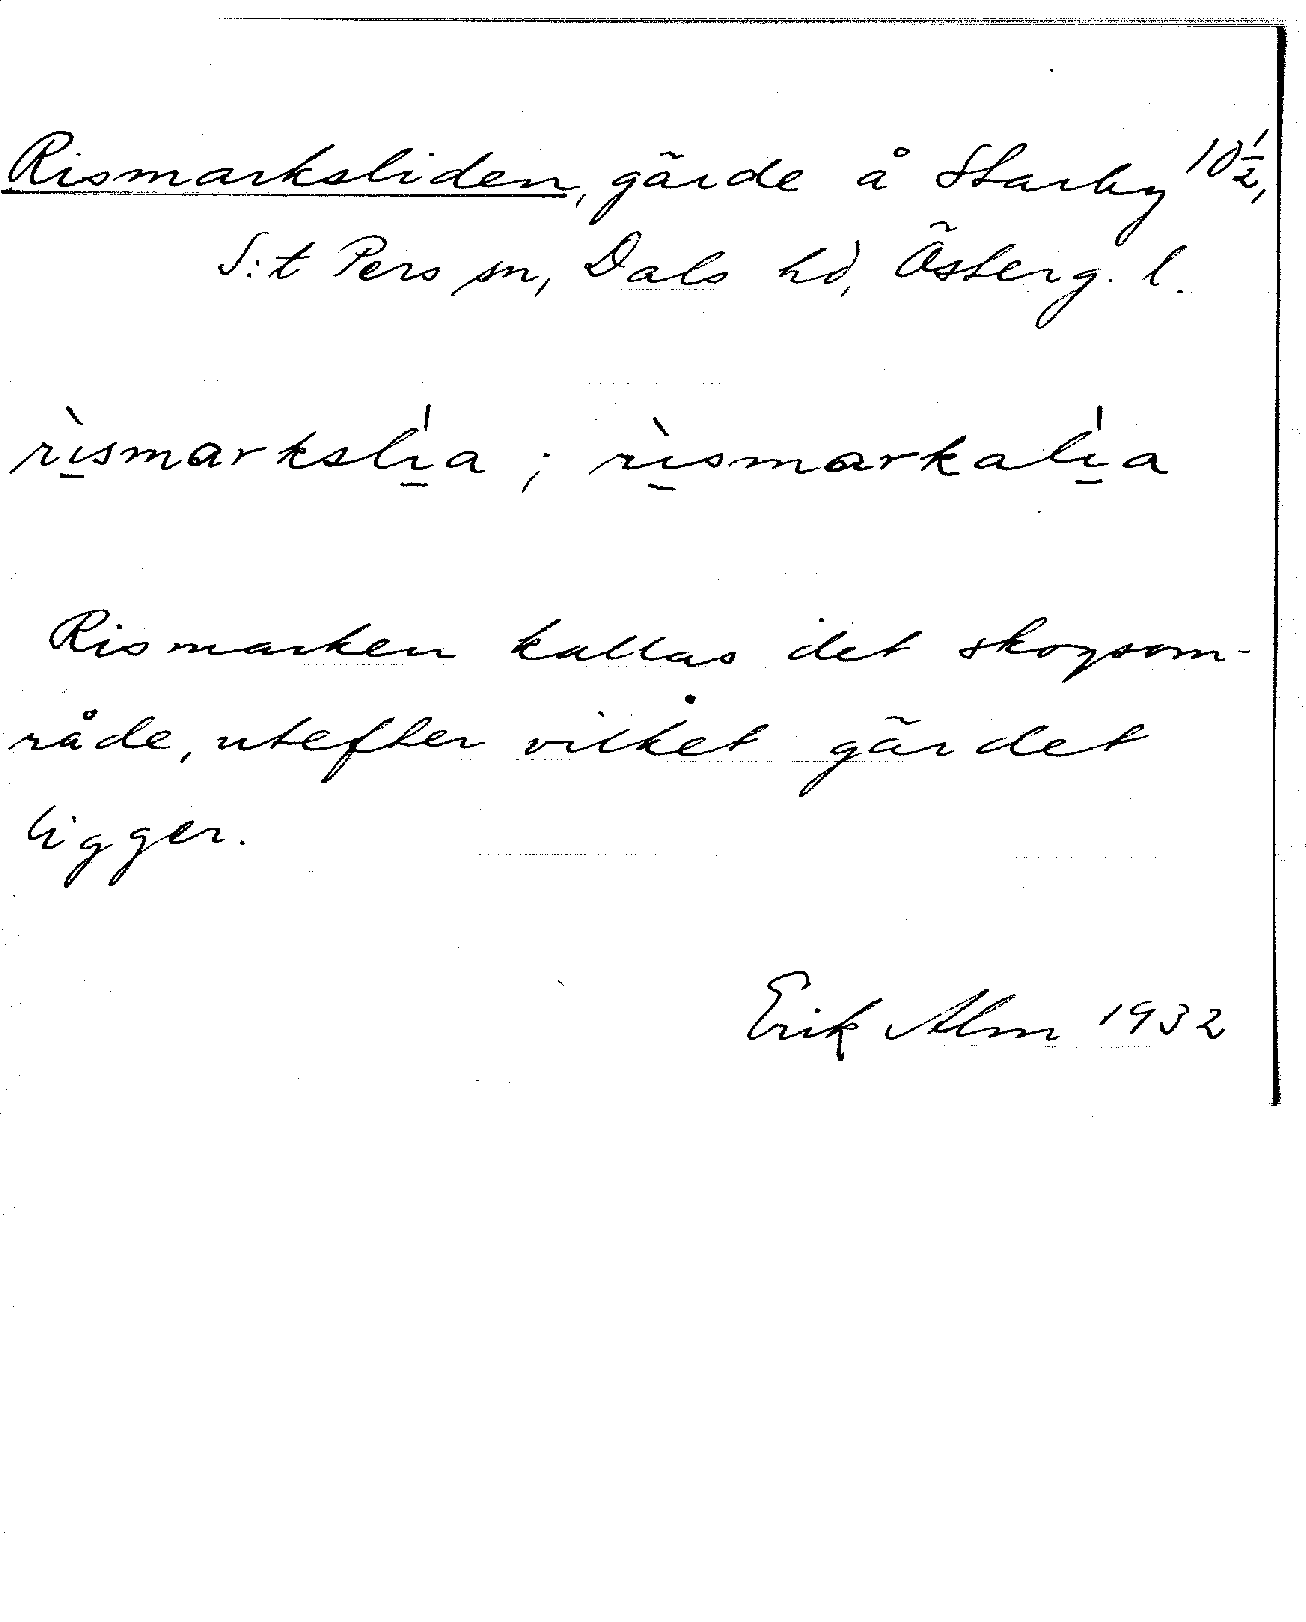 Rismarksliden, gärde å Starby 10½,
S:t Pers sn, Dals hd, Österg. l.
rìsmarkslía ; rìsmarkalía
Rismarken kallas det skogsom-
råde, utefter vilket gärdet
ligger.
Erik Alm 1932